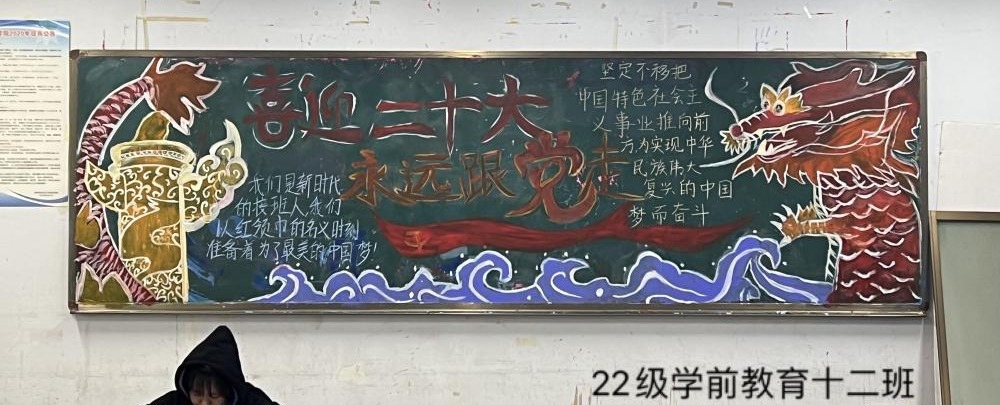 喜迎二十大
永远跟党走
我们是新时代
的接班人我们
以红领巾的名义时刻
准备着为了最美的中国梦!
坚定不移把
中国特色社会主
义事业推向前
方为实现中华
民族伟大
复兴的中国
梦而奋斗
22级学前教育十二班